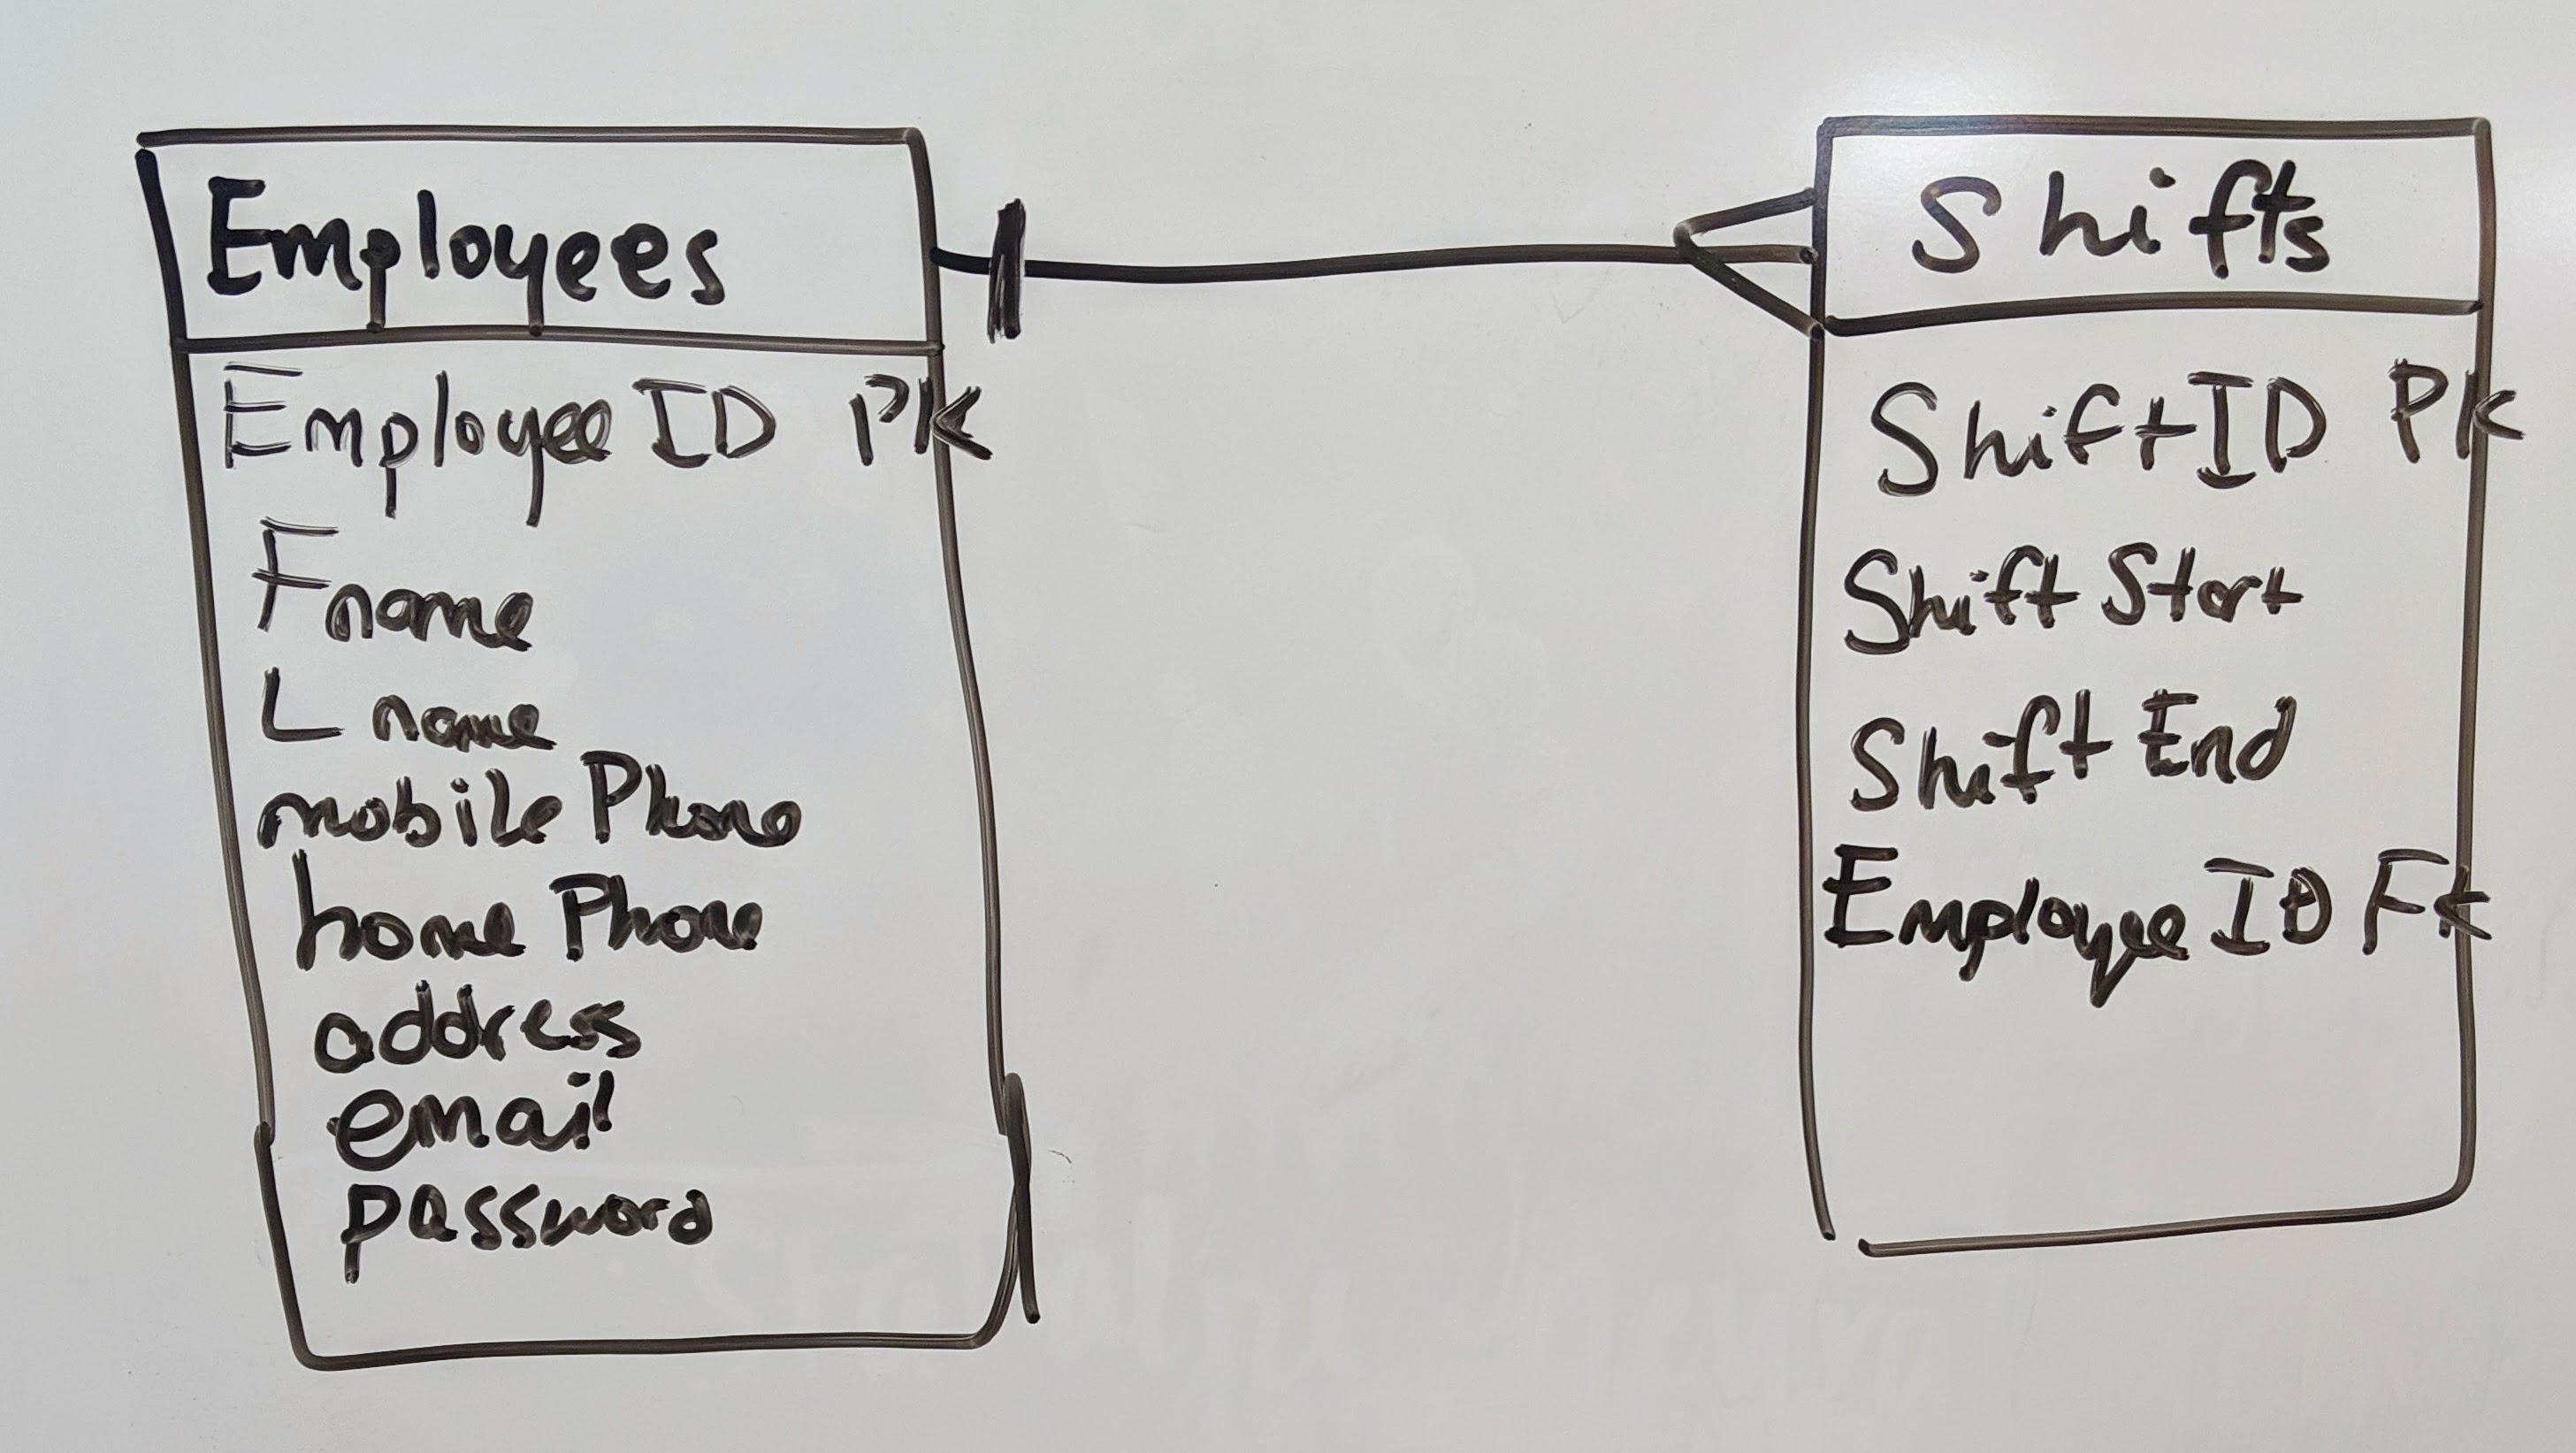 Employees
Employee ID PK
Fname
Lname
mobile Phone
home Phone
address
email
password
Shifts
Shift ID PK
Shift Start
Shift End
Employee ID FK